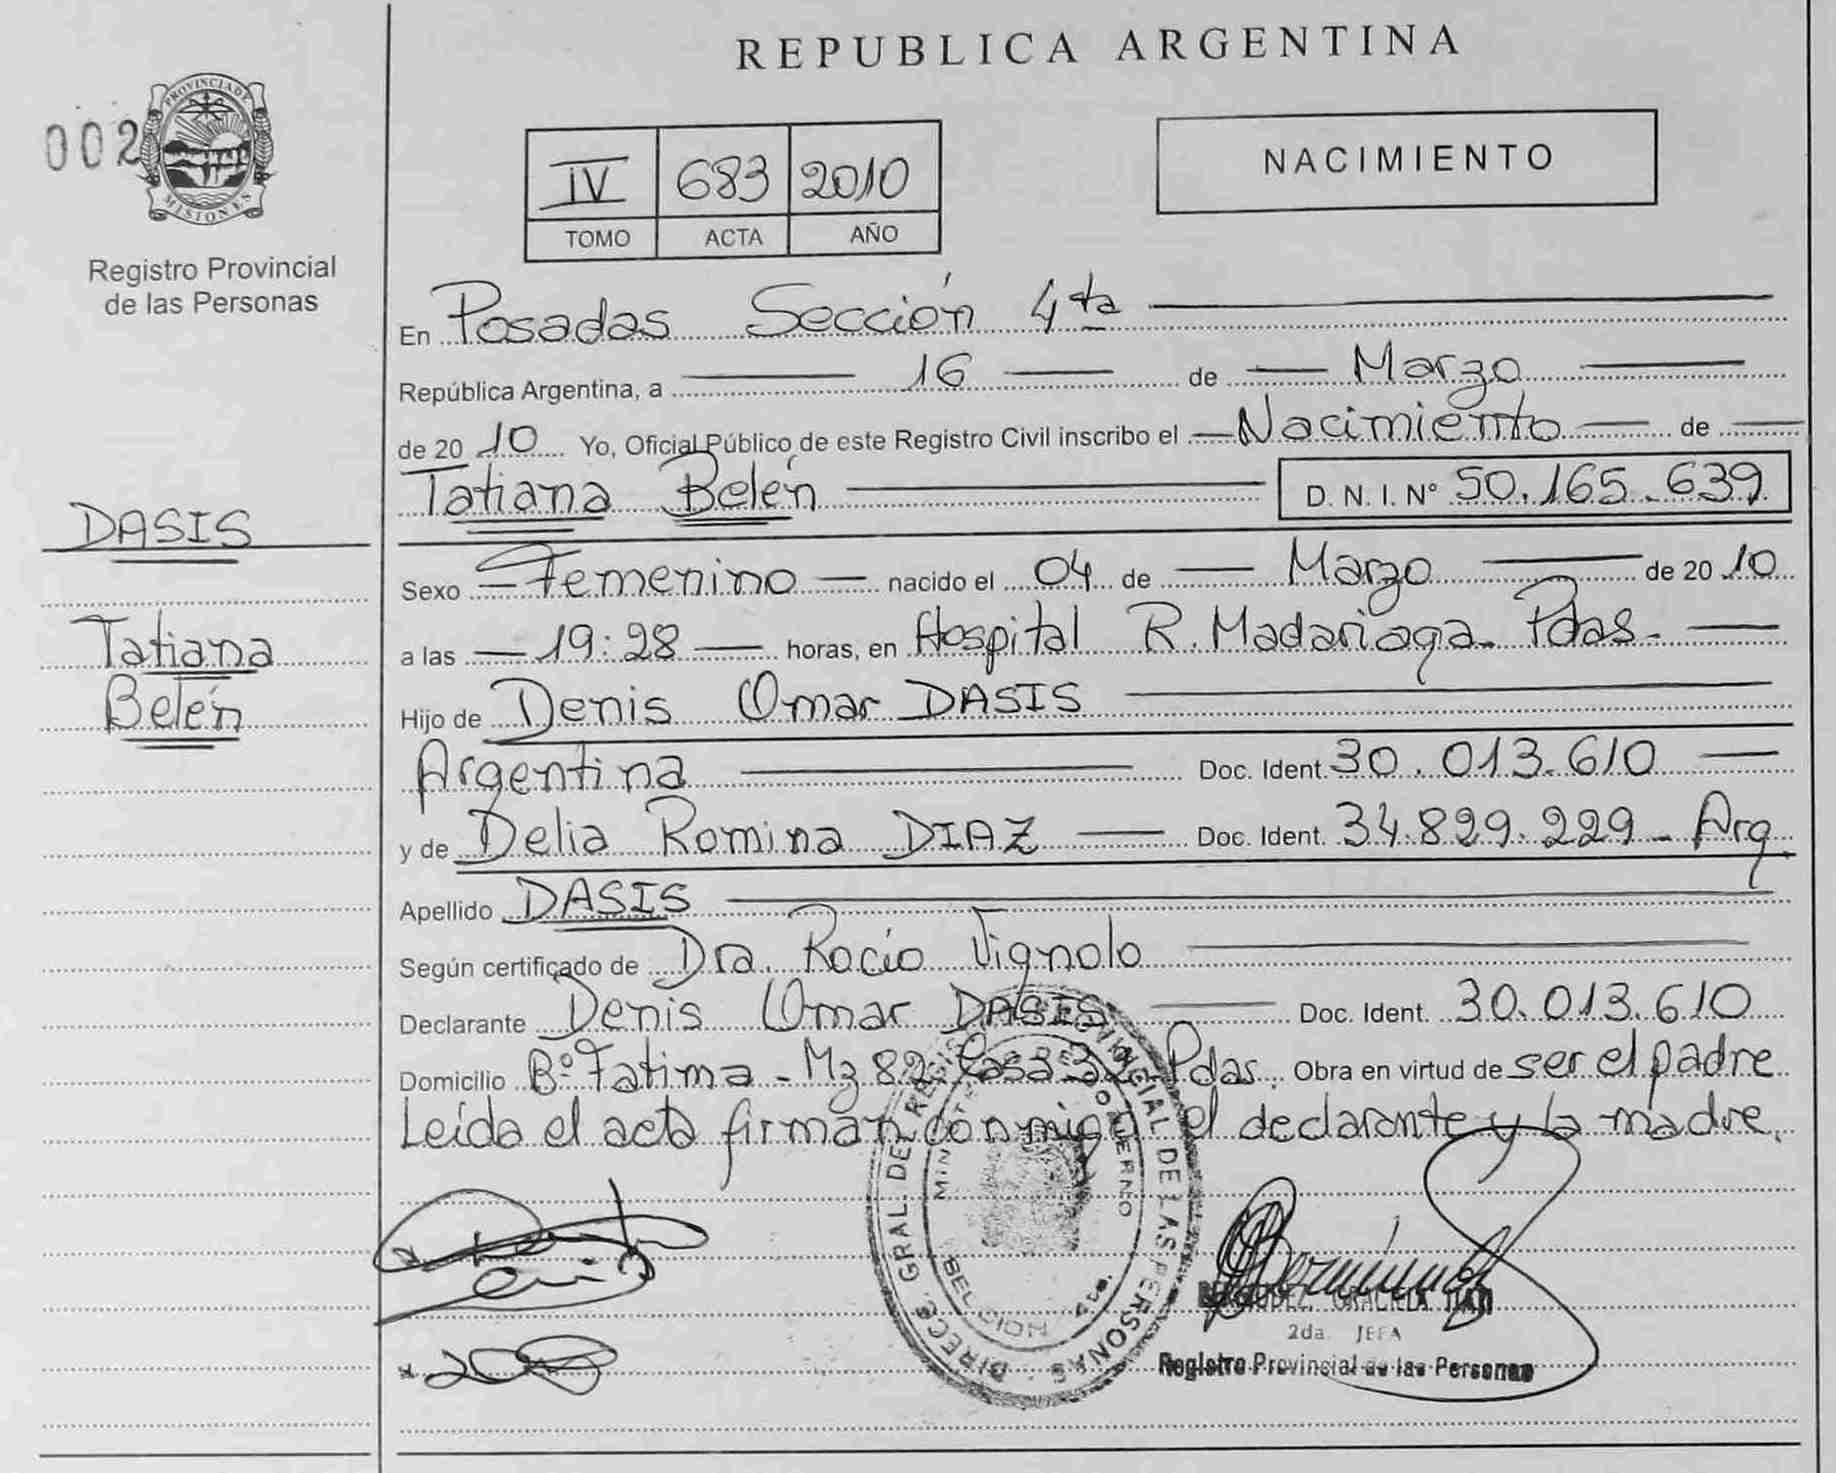 REPUBLICA ARGENTINA
002
PROVINCIA DE
MISIONES
Registro Provincial
de las Personas
IV 683 2010
TOMO ACTA AÑO
NACIMIENTO
En Posadas Sección 4ta
República Argentina, a 16 de Marzo
de 2010 Yo, Oficial Público de este Registro Civil inscribo el Nacimiento de
Tatiana Belén D. N. I. Nº 50.165.639
DASIS
Tatiana
Belén
Sexo Femenino nacido el 04 de Marzo de 2010
a las 19:28 horas, en Hospital R. Madariaga - Pdas -
Hijo de Denis Omar DASIS
Argentina Doc. Ident. 30.013.610
y de Delia Romina DIAZ Doc. Ident. 34.829.229 - Arg.
Apellido DASIS
Según certificado de Dra. Rocío Vignolo
Declarante Denis Omar DASIS Doc. Ident. 30.013.610
Domicilio Bº Fatima - Mz 82 Casa 32 Pdas. Obra en virtud de ser el padre
Leída el acta firman conmigo el declarante y la madre.
DIRECC. GRAL. DE REGISTRO PROVINCIAL DE LAS PERSONAS
MINISTERIO DE GOBIERNO
SECCION 4ta.
BERMUDEZ, GRACIELA
2da. JEFA
Registro Provincial de las Personas